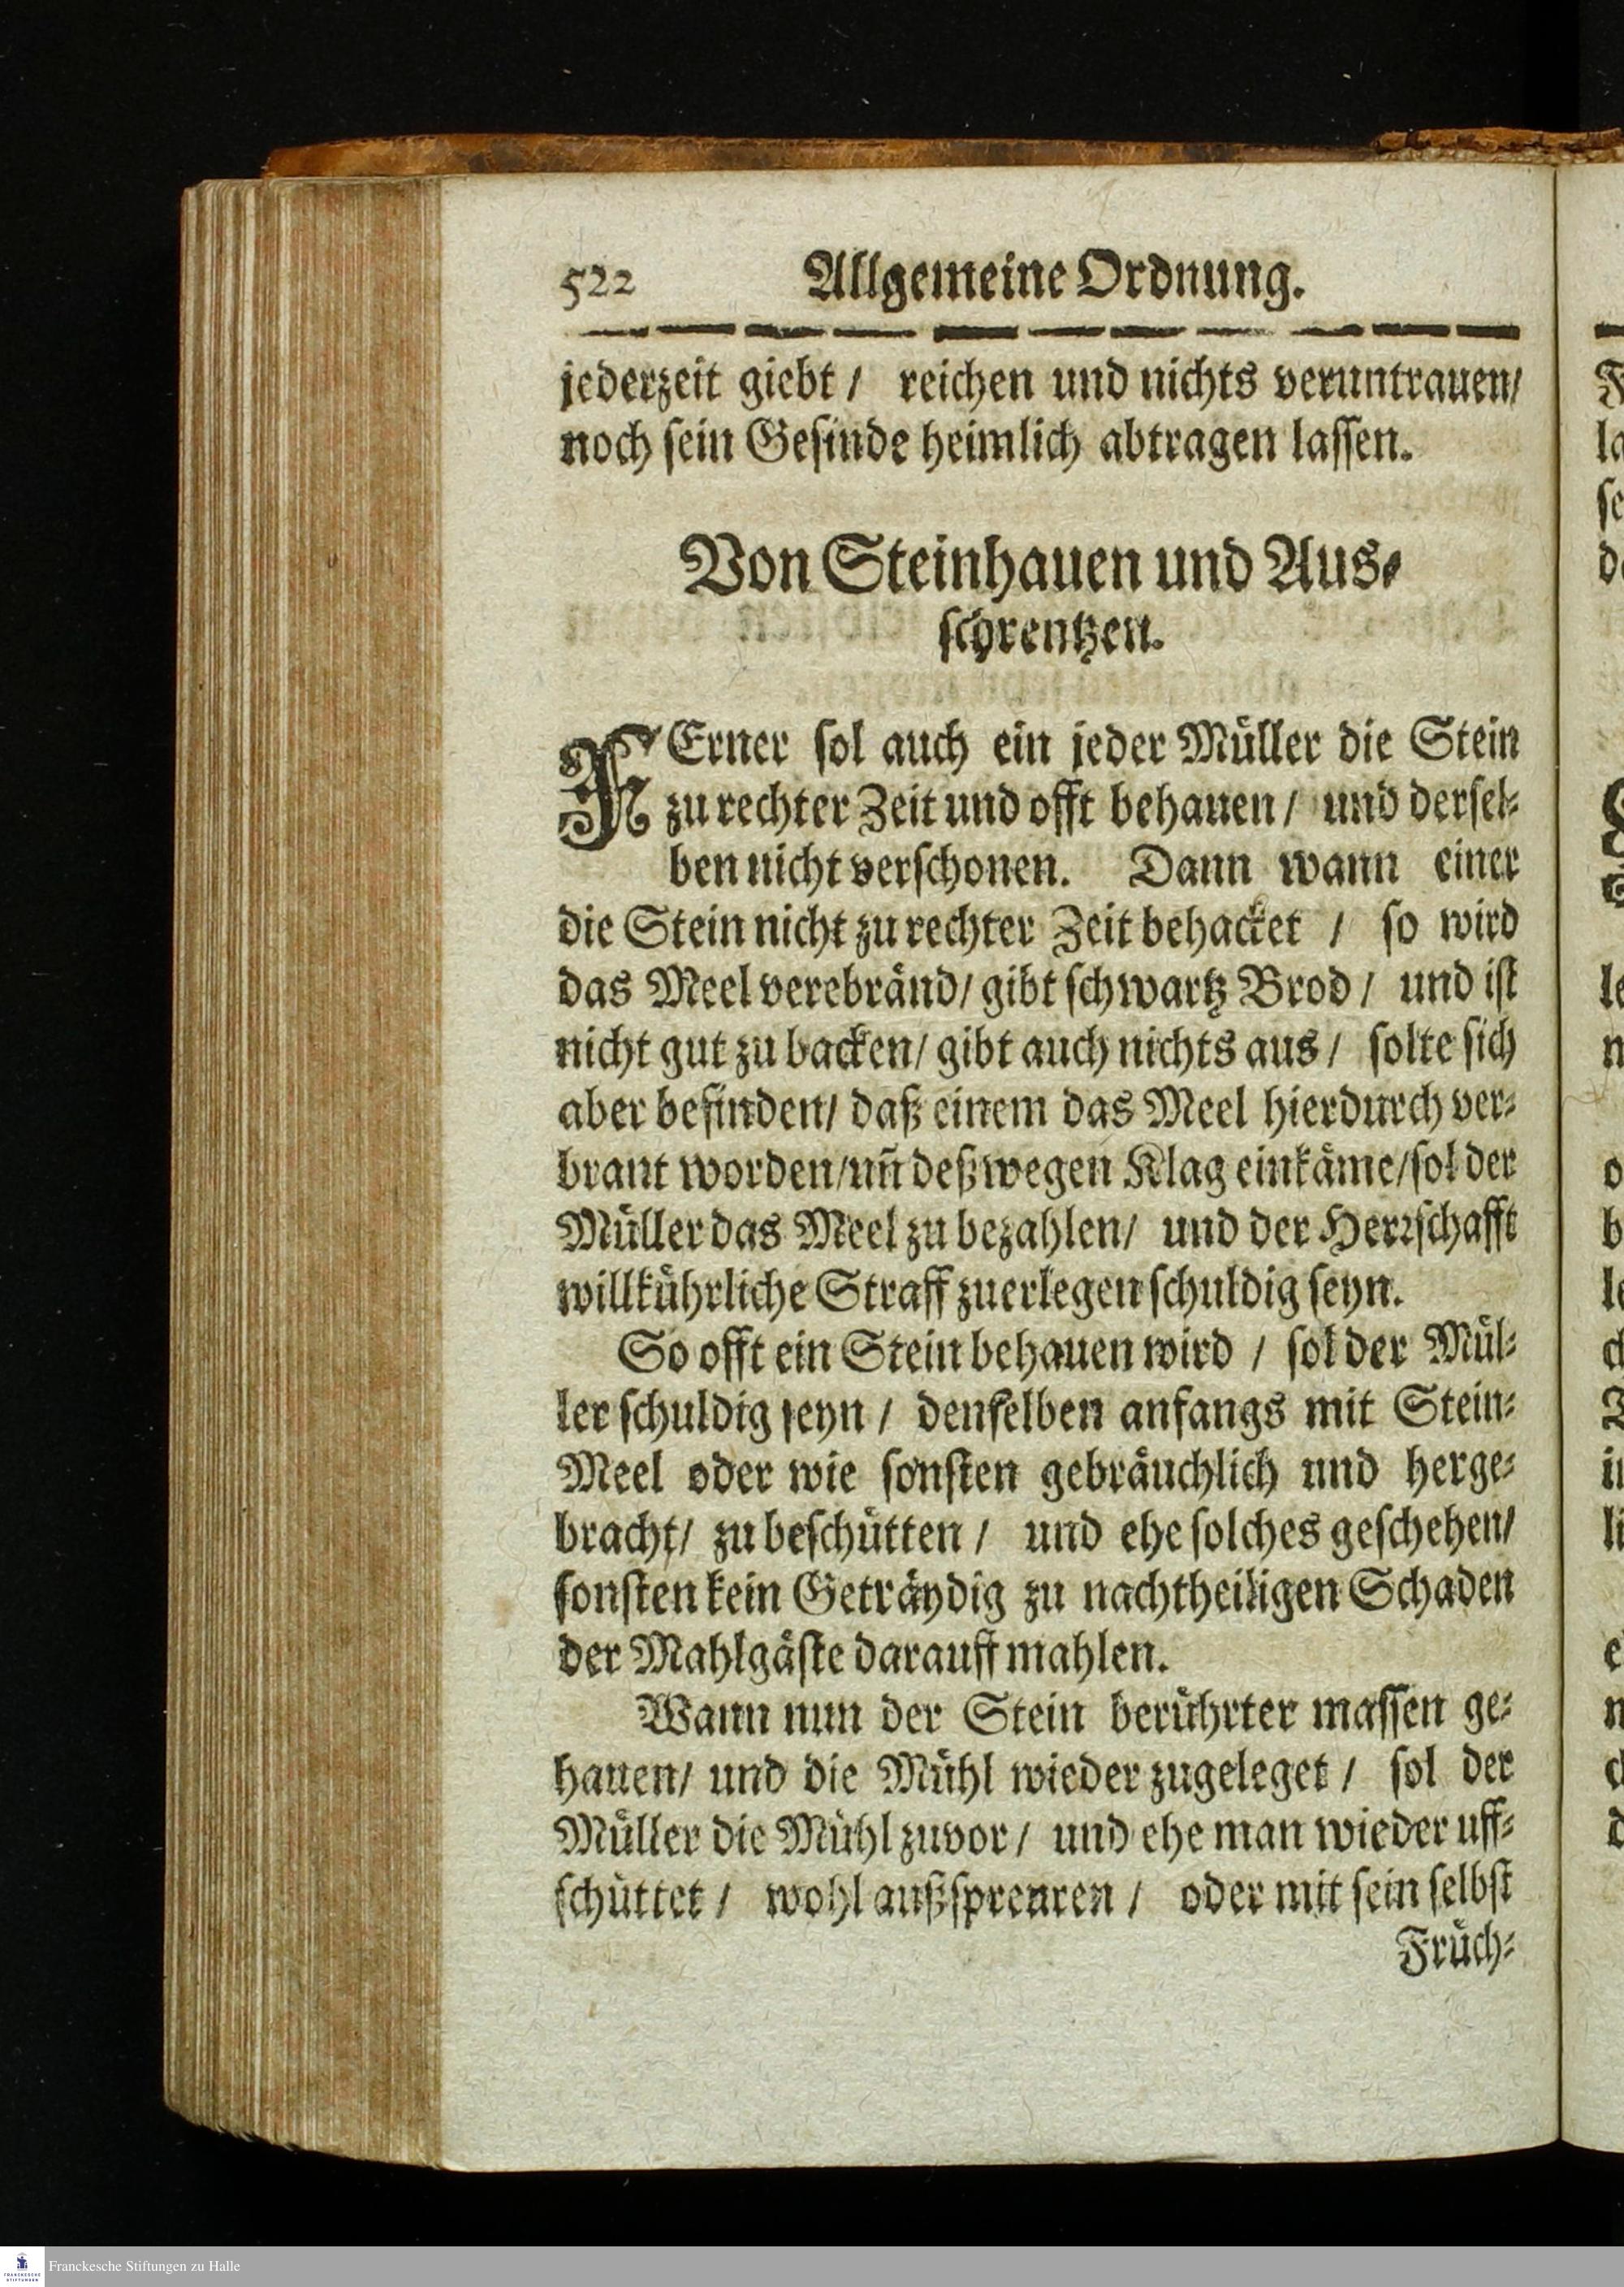 522 Allgemeine Ordnung.
jederzeit giebt / reichen und nichts veruntrauen/
noch sein Gesinde heimlich abtragen lassen.
Von Steinhauen und Aus-
schrentzen.
FErner sol auch ein jeder Müller die Stein
zu rechter Zeit und offt behauen / und dersel-
ben nicht verschonen. Dann wann einer
die Stein nicht zu rechter Zeit behacket / so wird
das Meel verebränd/ gibt schwartz Brod / und ist
nicht gut zu backen/ gibt auch nichts aus / solte sich
aber befinden/ daß einem das Meel hierdurch ver-
brant worden/uñ deßwegen Klag einkäme/sol der
Müller das Meel zu bezahlen/ und der Herrschafft
willkührliche Straff zuerlegen schuldig seyn.
So offt ein Stein behauen wird / sol der Mül-
ler schuldig seyn / denselben anfangs mit Stein-
Meel oder wie sonsten gebräuchlich und herge-
bracht/ zu beschütten / und ehe solches geschehen/
sonsten kein Geträydig zu nachtheiligen Schaden
der Mahlgäste darauff mahlen.
Wann nun der Stein berührter massen ge-
hauen/ und die Mühl wieder zugeleget / sol der
Müller die Mühl zuvor / und ehe man wieder uff-
schüttet / wohl außsprenren / oder mit sein selbst
Früch-
Franckesche Stiftungen zu Halle
FRANCKESCHE
STIFTUNGEN